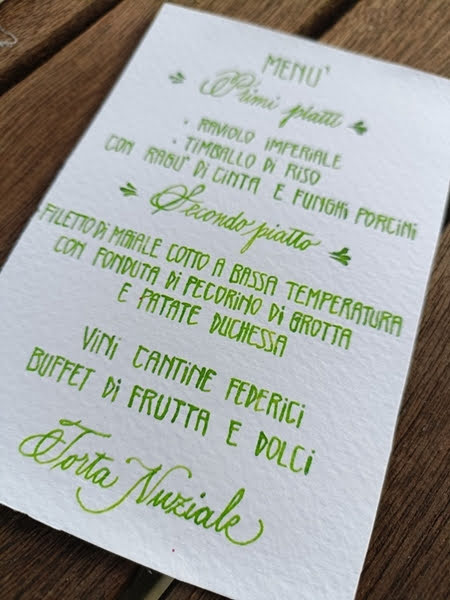 MENU'
Primi piatti
• RAVIOLO IMPERIALE
• TIMBALLO DI RISO
CON RAGU' DI CINTA E FUNGHI PORCINI
Secondo piatto
FILETTO DI MAIALE COTTO A BASSA TEMPERATURA
CON FONDUTA DI PECORINO DI GROTTA
E PATATE DUCHESSA
VINI CANTINE FEDERICI
BUFFET DI FRUTTA E DOLCI
Torta Nuziale